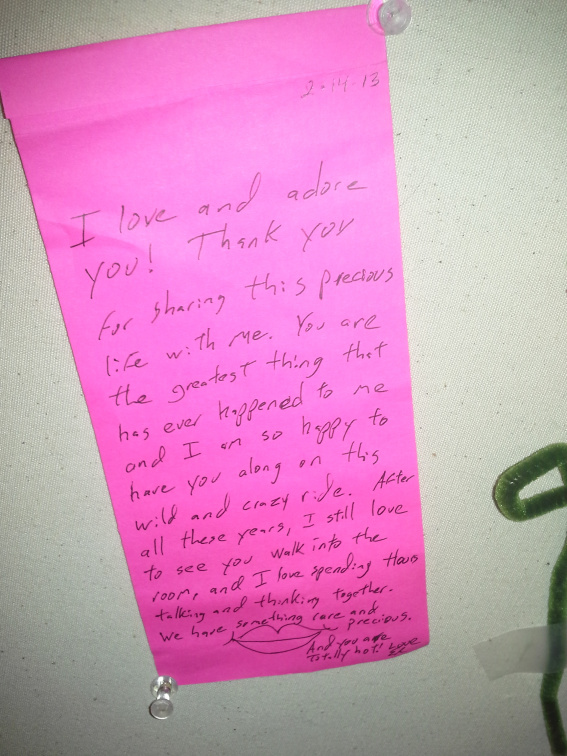 2-14-13
I love and adore
you! Thank you
for sharing this precious
life with me. You are
the greatest thing that
has ever happened to me
and I am so happy to
have you along on this
wild and crazy ride. After
all these years, I still love
to see you walk into the
room, and I love spending hours
talking and thinking together.
We have something rare and
precious.
And you are
totally hot! Love